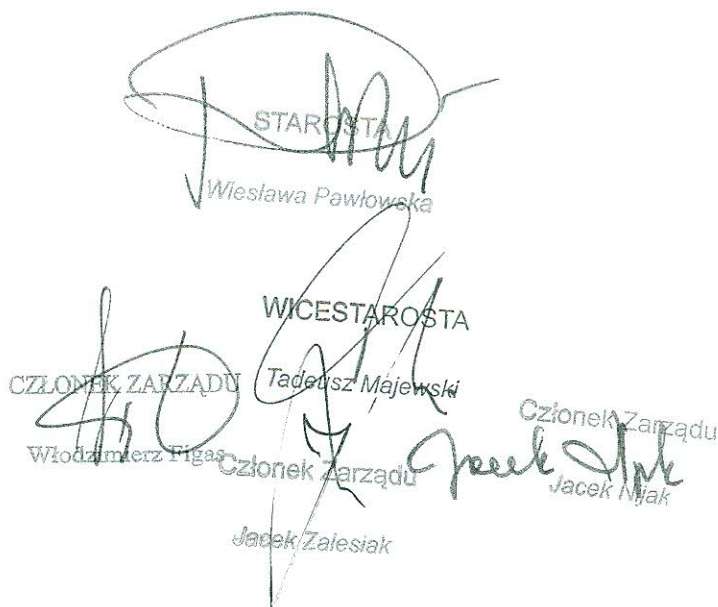 STAROSTA
Wiesława Pawłowska
WICESTAROSTA
Tadeusz Majewski
CZŁONEK ZARZĄDU
Włodzimierz Figas
Członek Zarządu
Jacek Zalesiak
Członek Zarządu
Jacek Nijak